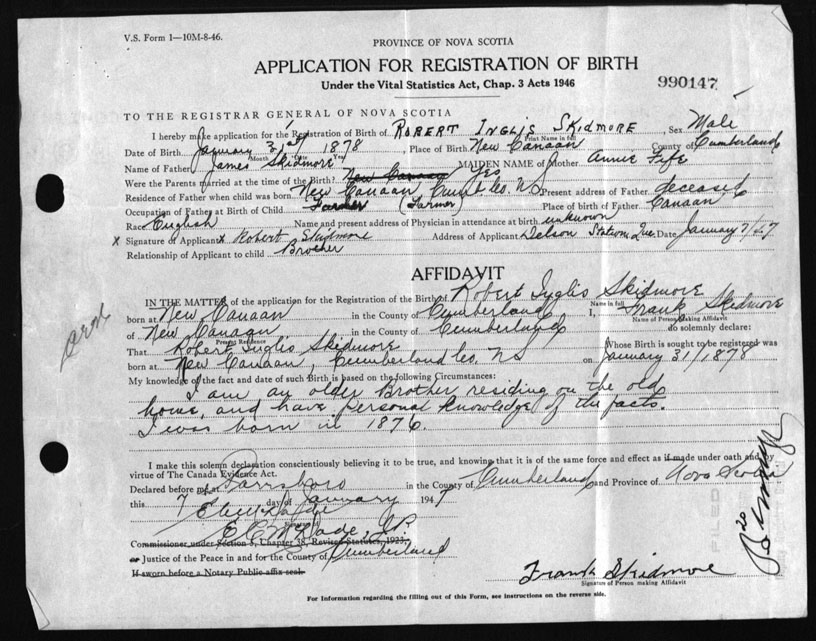 V.S. Form 1—10M-8-46.
PROVINCE OF NOVA SCOTIA
APPLICATION FOR REGISTRATION OF BIRTH
Under the Vital Statistics Act, Chap. 3 Acts 1946
990147
TO THE REGISTRAR GENERAL OF NOVA SCOTIA
I hereby make application for the Registration of Birth of ROBERT INGLIS SKIDMORE Sex Male
Print Name in full
Date of Birth January 31st 1878 Place of Birth New Canaan County of Cumberland
Month Date Year
Name of Father James Skidmore MAIDEN NAME of Mother Annie Fife
Were the Parents married at the time of the Birth? New Canaan Yes
Residence of Father when child was born New Canaan, Cumb. Co. N.S. Present address of Father deceased
Occupation of Father at Birth of Child Farmer (Farmer) Place of birth of Father Canaan
Race English Name and present address of Physician in attendance at birth unknown
X Signature of Applicant X Robert Skidmore Address of Applicant Delson Station, Que. Date January 7/47
Relationship of Applicant to child Brother
AFFIDAVIT
IN THE MATTER of the application for the Registration of the Birth of Robert Inglis Skidmore
Name in full
born at New Canaan in the County of Cumberland I, Frank Skidmore
Name of Person Making Affidavit
of New Canaan in the County of Cumberland do solemnly declare:
Present Residence
That Robert Inglis Skidmore Whose Birth is sought to be registered was
born at New Canaan, Cumberland Co. NS on January 31/1878
My knowledge of the fact and date of such Birth is based on the following Circumstances:
I am an older Brother residing on the old
home, and have personal knowledge of the facts.
I was born in 1876.
I make this solemn declaration conscientiously believing it to be true, and knowing that it is of the same force and effect as if made under oath and by
virtue of The Canada Evidence Act.
Declared before me Parrsboro in the County of Cumberland and Province of Nova Scotia
this 7 day of January 1947
Commissioner under Section 8, Chapter 38, Revised Statutes, 1923,
or Justice of the Peace in and for the County of Cumberland
If sworn before a Notary Public affix seal.
Frank Skidmore
Signature of Person making Affidavit
For Information regarding the filling out of this Form, see instructions on the reverse side.
FILED